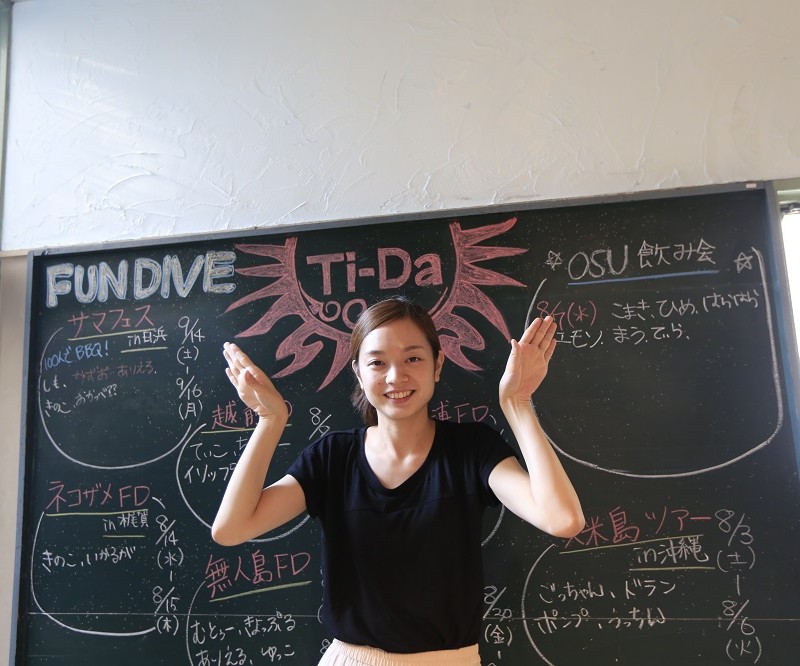 FUN DIVE
Ti-Da
OSU 飲み会
8/7(水) こまき、ひめ、はらはら
モン、まう、てぃら、
サマフェス
in 白浜
9/14
(土)
9/16
(月)
100人でBBQ!
しも、かずお、ありえる、
きのこ
越前
8/
てぃこ、
イソップ
浦FD
ネコザメFD
in 梶賀
8/14
(水)
8/15
(木)
きのこ、いかるが
無人島FD
むとぅー、きょっぷる
ありえる、ゆっこ
8/20
(金)
久米島ツアー
in 沖縄
8/3
(土)
8/6
(火)
ごっちゃん、ドラン
ポンプ、うっちん